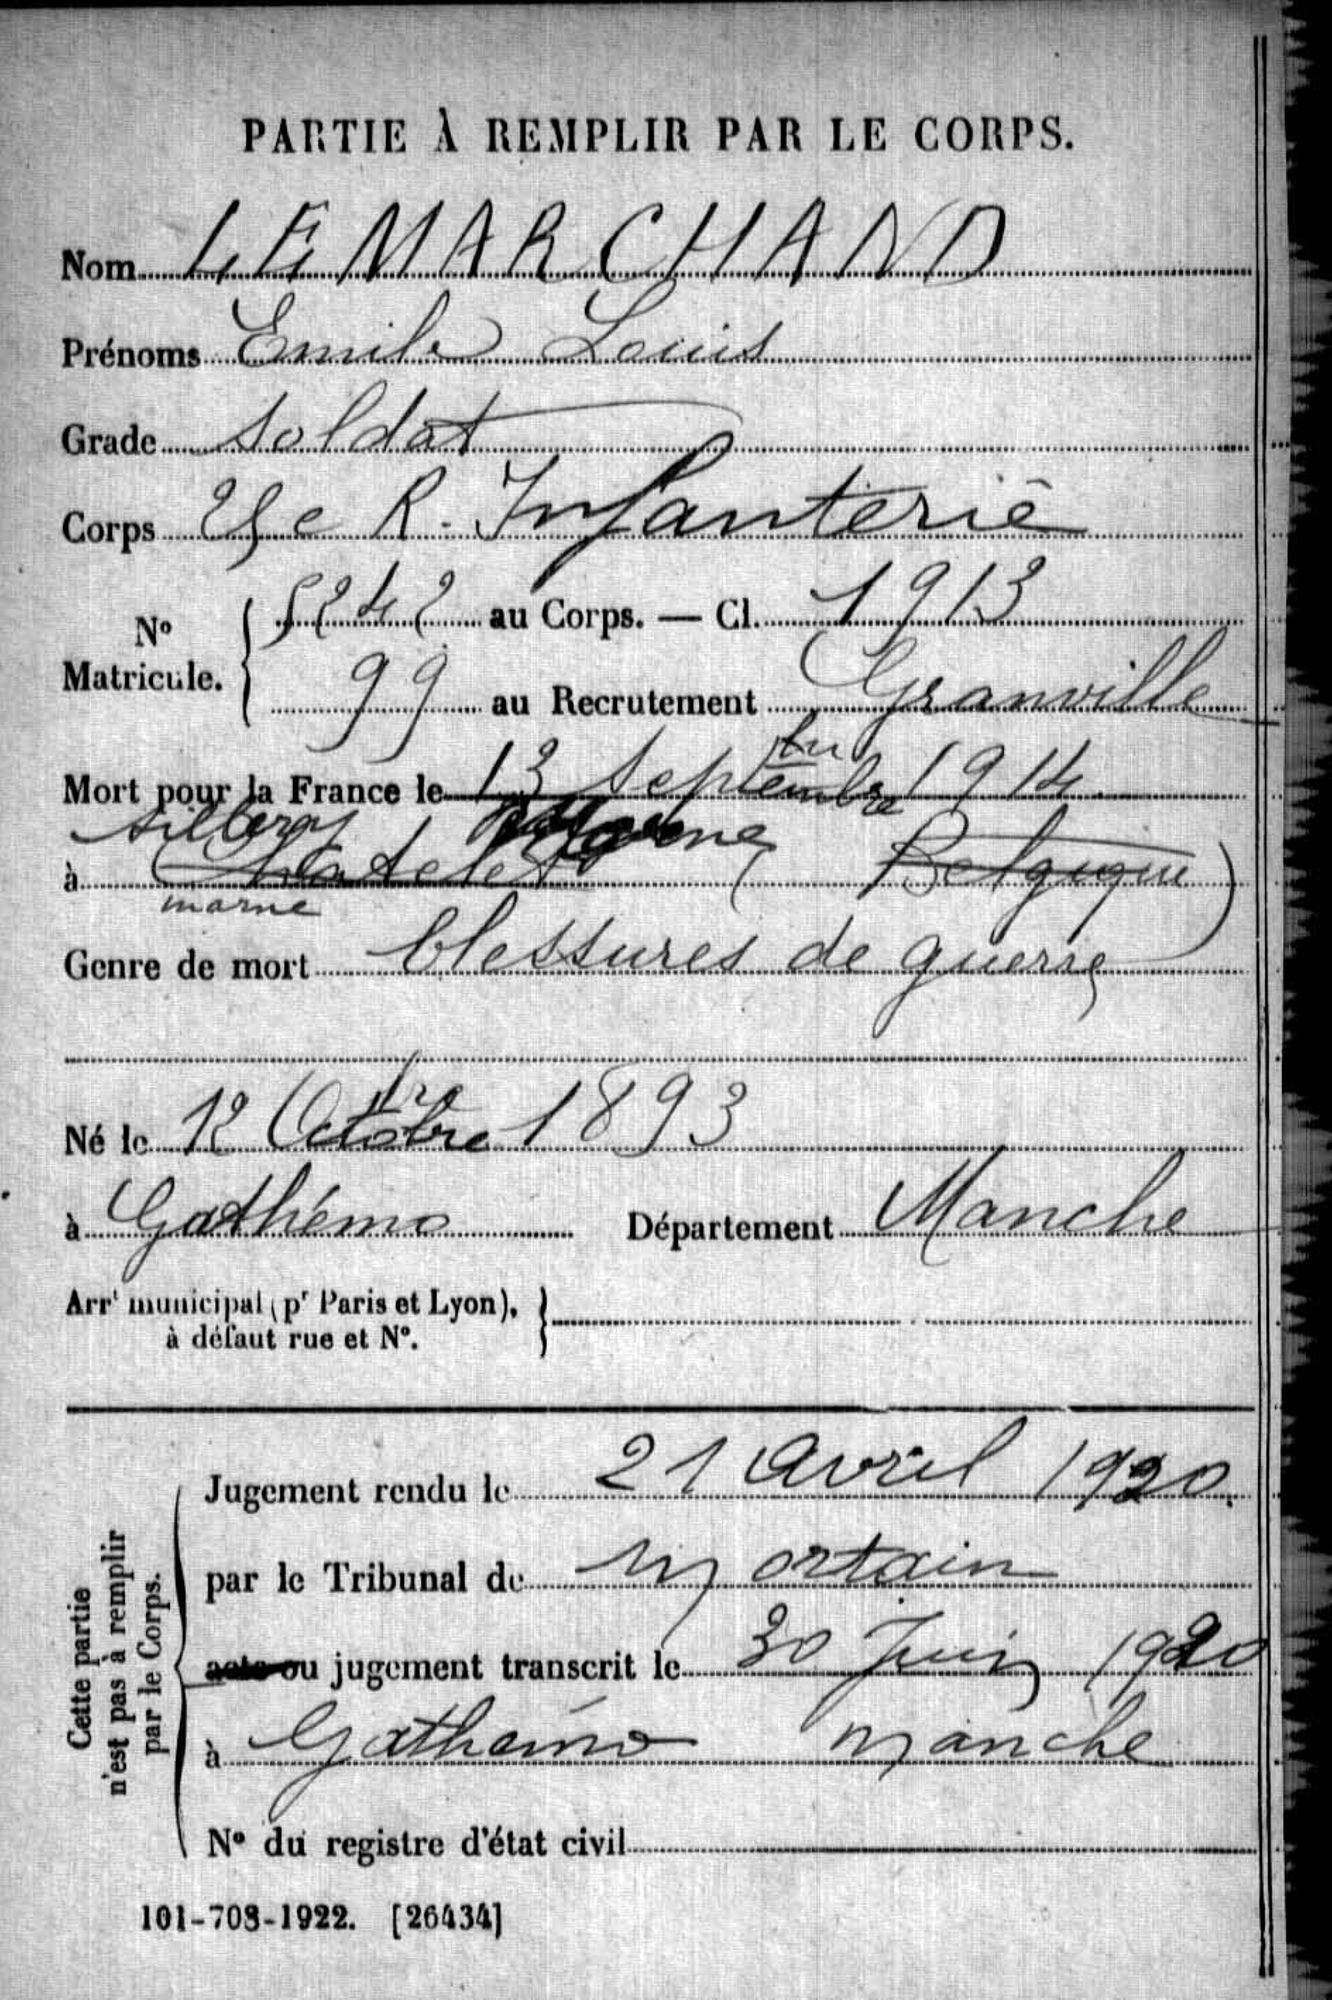 PARTIE À REMPLIR PAR LE CORPS.
Nom LEMARCHAND
Prénoms Emile Louis
Grade Soldat
Corps 25e R. Infanterie
5242 au Corps. — Cl. 1913
N° Matricule.
99 au Recrutement Granville
Mort pour la France le 13 Septembre 1914
Sillery Marne
à Chatelet (Belgique)
marne
Genre de mort blessures de guerre
Né le 12 Octobre 1893
à Gathémo Département Manche
Arrt municipal (pr Paris et Lyon),
à défaut rue et N°.
Cette partie
n'est pas à remplir
par le Corps.
Jugement rendu le 21 Avril 1920.
par le Tribunal de Mortain
acte ou jugement transcrit le 30 Juin 1920
à Gathémo Manche
N° du registre d'état civil
101-708-1922. [26434]